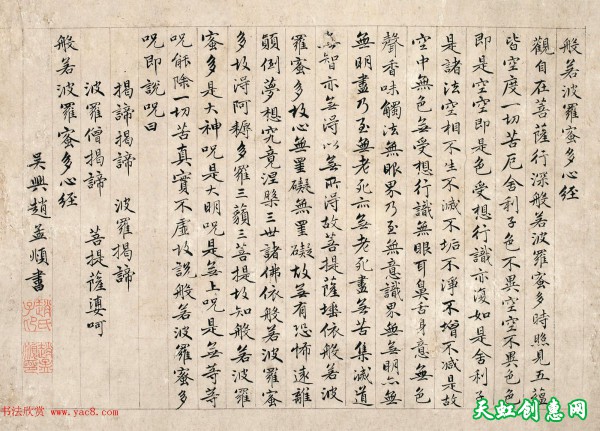 般若波羅蜜多心經
觀自在菩薩行深般若波羅蜜多時照見五蘊
皆空度一切苦厄舍利子色不異空空不異色色
即是空空即是色受想行識亦復如是舍利子
是諸法空相不生不滅不垢不淨不增不減是故
空中無色無受想行識無眼耳鼻舌身意無色
聲香味觸法無眼界乃至無意識界無無明亦無
無明盡乃至無老死亦無老死盡無苦集滅道
無智亦無得以無所得故菩提薩埵依般若波
羅蜜多故心無罣礙無罣礙故無有恐怖遠離
顛倒夢想究竟涅槃三世諸佛依般若波羅蜜
多故得阿耨多羅三藐三菩提故知般若波羅
蜜多是大神呪是大明呪是無上呪是無等等
呪能除一切苦真實不虛故說般若波羅蜜多
呪即說呪曰
揭諦揭諦 波羅揭諦
波羅僧揭諦 菩提薩婆呵
般若波羅蜜多心經
吳興趙孟頫書
趙氏子昂
书法欣赏 www.yac8.com
天虹创意网